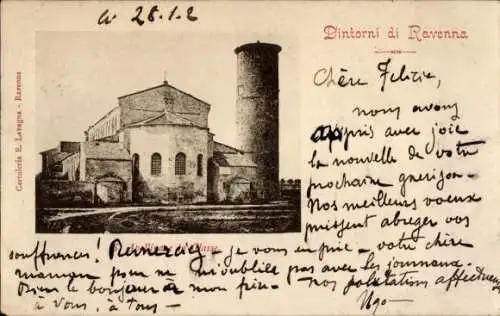 le 28.1.2
Dintorni di Ravenna
Cartoleria E. Lavagna - Ravenna
Chère Felicie,
nous avons
appris avec joie
la nouvelle de votre
prochaine guerison.
Nos meilleurs voeux
puissent abreger vos
souffrances! Remerciez - je vous en prie - votre chère
maman pour ne m'oublie pas avec les journaux.
Bien le bonjour de mon frère. Nos salutations affectueuses
à vous, à tous -
Ugo